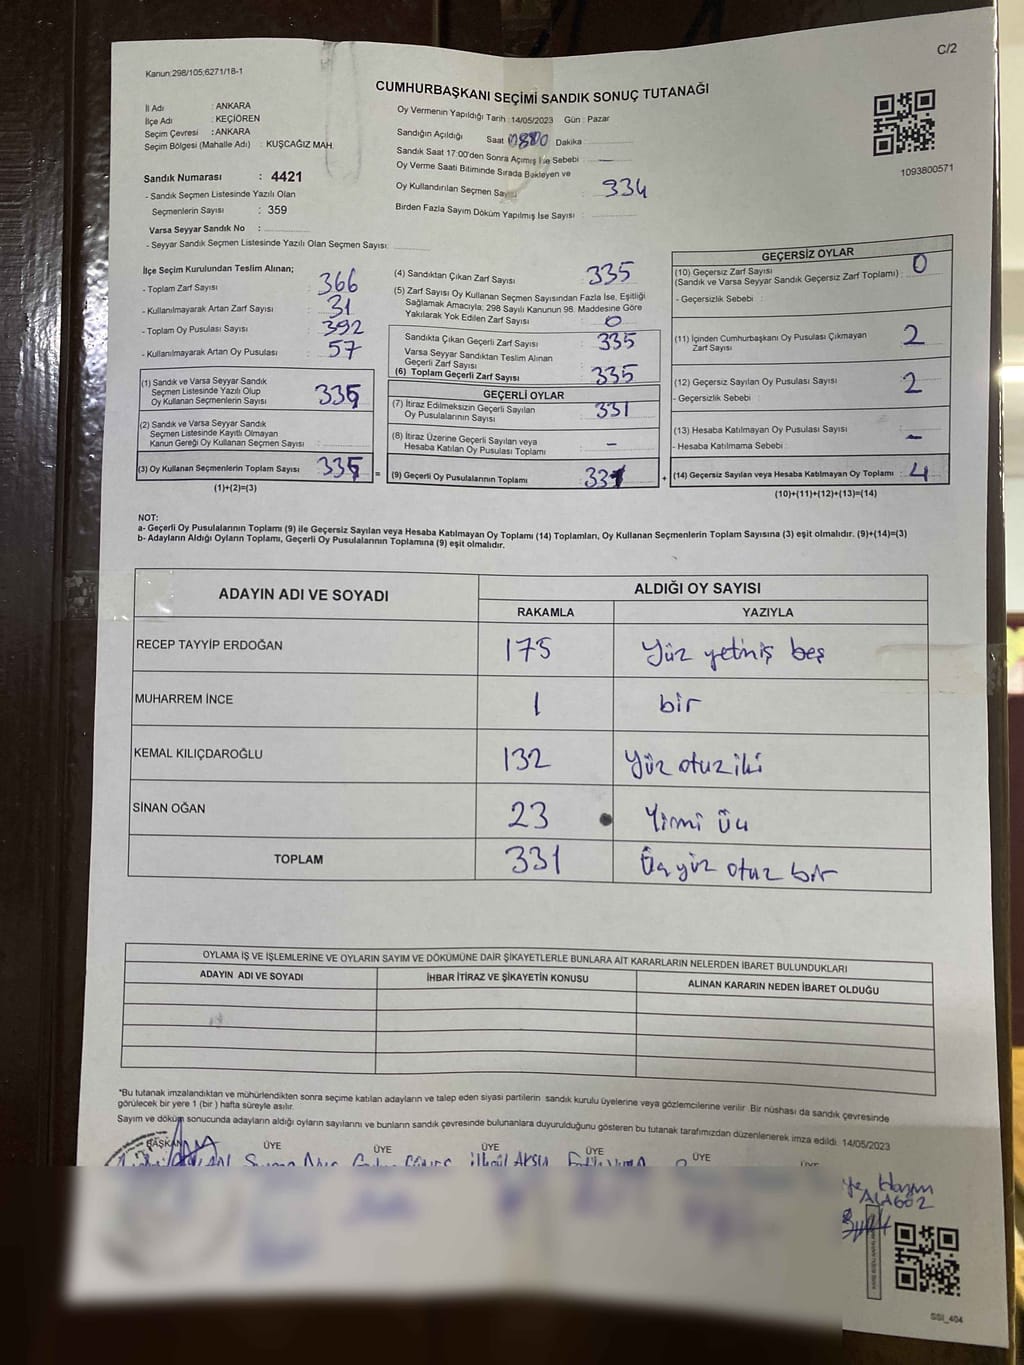 C/2
Kanun:298/105;6271/18-1
CUMHURBAŞKANI SEÇİMİ SANDIK SONUÇ TUTANAĞI
İl Adı : ANKARA
İlçe Adı : KEÇİÖREN
Seçim Çevresi : ANKARA
Seçim Bölgesi (Mahalle Adı) : KUŞCAĞIZ MAH.
Sandık Numarası : 4421
- Sandık Seçmen Listesinde Yazılı Olan
Seçmenlerin Sayısı : 359
Varsa Seyyar Sandık No :
- Seyyar Sandık Seçmen Listesinde Yazılı Olan Seçmen Sayısı:
Oy Vermenin Yapıldığı Tarih : 14/05/2023 Gün : Pazar
Sandığın Açıldığı Saat Dakika
Sandık Saat 17:00'den Sonra Açımış İse Sebebi
Oy Verme Saati Bitiminde Sırada Bekleyen ve
Oy Kullandırılan Seçmen 334
Birden Fazla Sayım Döküm Yapılmış İse Sayısı :
1093800571
İlçe Seçim Kurulundan Teslim Alınan;
- Toplam Zarf Sayısı : 366
- Kullanılmayarak Artan Zarf Sayısı : 31
- Toplam Oy Pusulası Sayısı : 392
- Kullanılmayarak Artan Oy Pusulası : 57
(1) Sandık ve Varsa Seyyar Sandık
Seçmen Listesinde Yazılı Olup
Oy Kullanan Seçmenlerin Sayısı : 335
(2) Sandık ve Varsa Seyyar Sandık
Seçmen Listesinde Kayıtlı Olmayan
Kanun Gereği Oy Kullanan Seçmen Sayısı :
(3) Oy Kullanan Seçmenlerin Toplam Sayısı : 335
(1)+(2)=(3)
(4) Sandıktan Çıkan Zarf Sayısı : 335
(5) Zarf Sayısı Oy Kullanan Seçmen Sayısından Fazla İse, Eşitliği
Sağlamak Amacıyla; 298 Sayılı Kanunun 98. Maddesine Göre
Yakılarak Yok Edilen Zarf Sayısı : 0
Sandıkta Çıkan Geçerli Zarf Sayısı : 335
Varsa Seyyar Sandıktan Teslim Alınan
Geçerli Zarf Sayısı
(6) Toplam Geçerli Zarf Sayısı : 335
GEÇERLİ OYLAR
(7) İtiraz Edilmeksizin Geçerli Sayılan
Oy Pusulalarının Sayısı : 331
(8) İtiraz Üzerine Geçerli Sayılan veya
Hesaba Katılan Oy Pusulası Toplamı : -
= (9) Geçerli Oy Pusulalarının Toplamı : 331 +
GEÇERSİZ OYLAR
(10) Geçersiz Zarf Sayısı
(Sandık ve Varsa Seyyar Sandık Geçersiz Zarf Toplamı) : 0
- Geçersizlik Sebebi :
(11) İçinden Cumhurbaşkanı Oy Pusulası Çıkmayan
Zarf Sayısı : 2
(12) Geçersiz Sayılan Oy Pusulası Sayısı : 2
- Geçersizlik Sebebi :
(13) Hesaba Katılmayan Oy Pusulası Sayısı : -
- Hesaba Katılmama Sebebi :
(14) Geçersiz Sayılan veya Hesaba Katılmayan Oy Toplamı : 4
(10)+(11)+(12)+(13)=(14)
NOT:
a- Geçerli Oy Pusulalarının Toplamı (9) ile Geçersiz Sayılan veya Hesaba Katılmayan Oy Toplamı (14) Toplamları, Oy Kullanan Seçmenlerin Toplam Sayısına (3) eşit olmalıdır. (9)+(14)=(3)
b- Adayların Aldığı Oyların Toplamı, Geçerli Oy Pusulalarının Toplamına (9) eşit olmalıdır.
ADAYIN ADI VE SOYADI
ALDIĞI OY SAYISI
RAKAMLA YAZIYLA
RECEP TAYYİP ERDOĞAN 175 Yüz yetmiş beş
MUHARREM İNCE 1 bir
KEMAL KILIÇDAROĞLU 132 Yüz otuz iki
SİNAN OĞAN 23 Yirmi üç
TOPLAM 331 Üçyüz otuz bir
OYLAMA İŞ VE İŞLEMLERİNE VE OYLARIN SAYIM VE DÖKÜMÜNE DAİR ŞİKAYETLERLE BUNLARA AİT KARARLARIN NELERDEN İBARET BULUNDUKLARI
ADAYIN ADI VE SOYADI İHBAR İTİRAZ VE ŞİKAYETİN KONUSU ALINAN KARARIN NEDEN İBARET OLDUĞU
*Bu tutanak imzalandıktan ve mühürlendikten sonra seçime katılan adayların ve talep eden siyasi partilerin sandık kurulu üyelerine veya gözlemcilerine verilir. Bir nüshası da sandık çevresinde
görülecek bir yere 1 (bir) hafta süreyle asılır.
Sayım ve döküm sonucunda adayların aldığı oyların sayılarını ve bunların sandık çevresinde bulunanlara duyurulduğunu gösteren bu tutanak tarafımızdan düzenlenerek imza edildi. 14/05/2023
BAŞKAN ÜYE ÜYE ÜYE ÜYE ÜYE
Hazım
ALAGÖZ
SSI_404